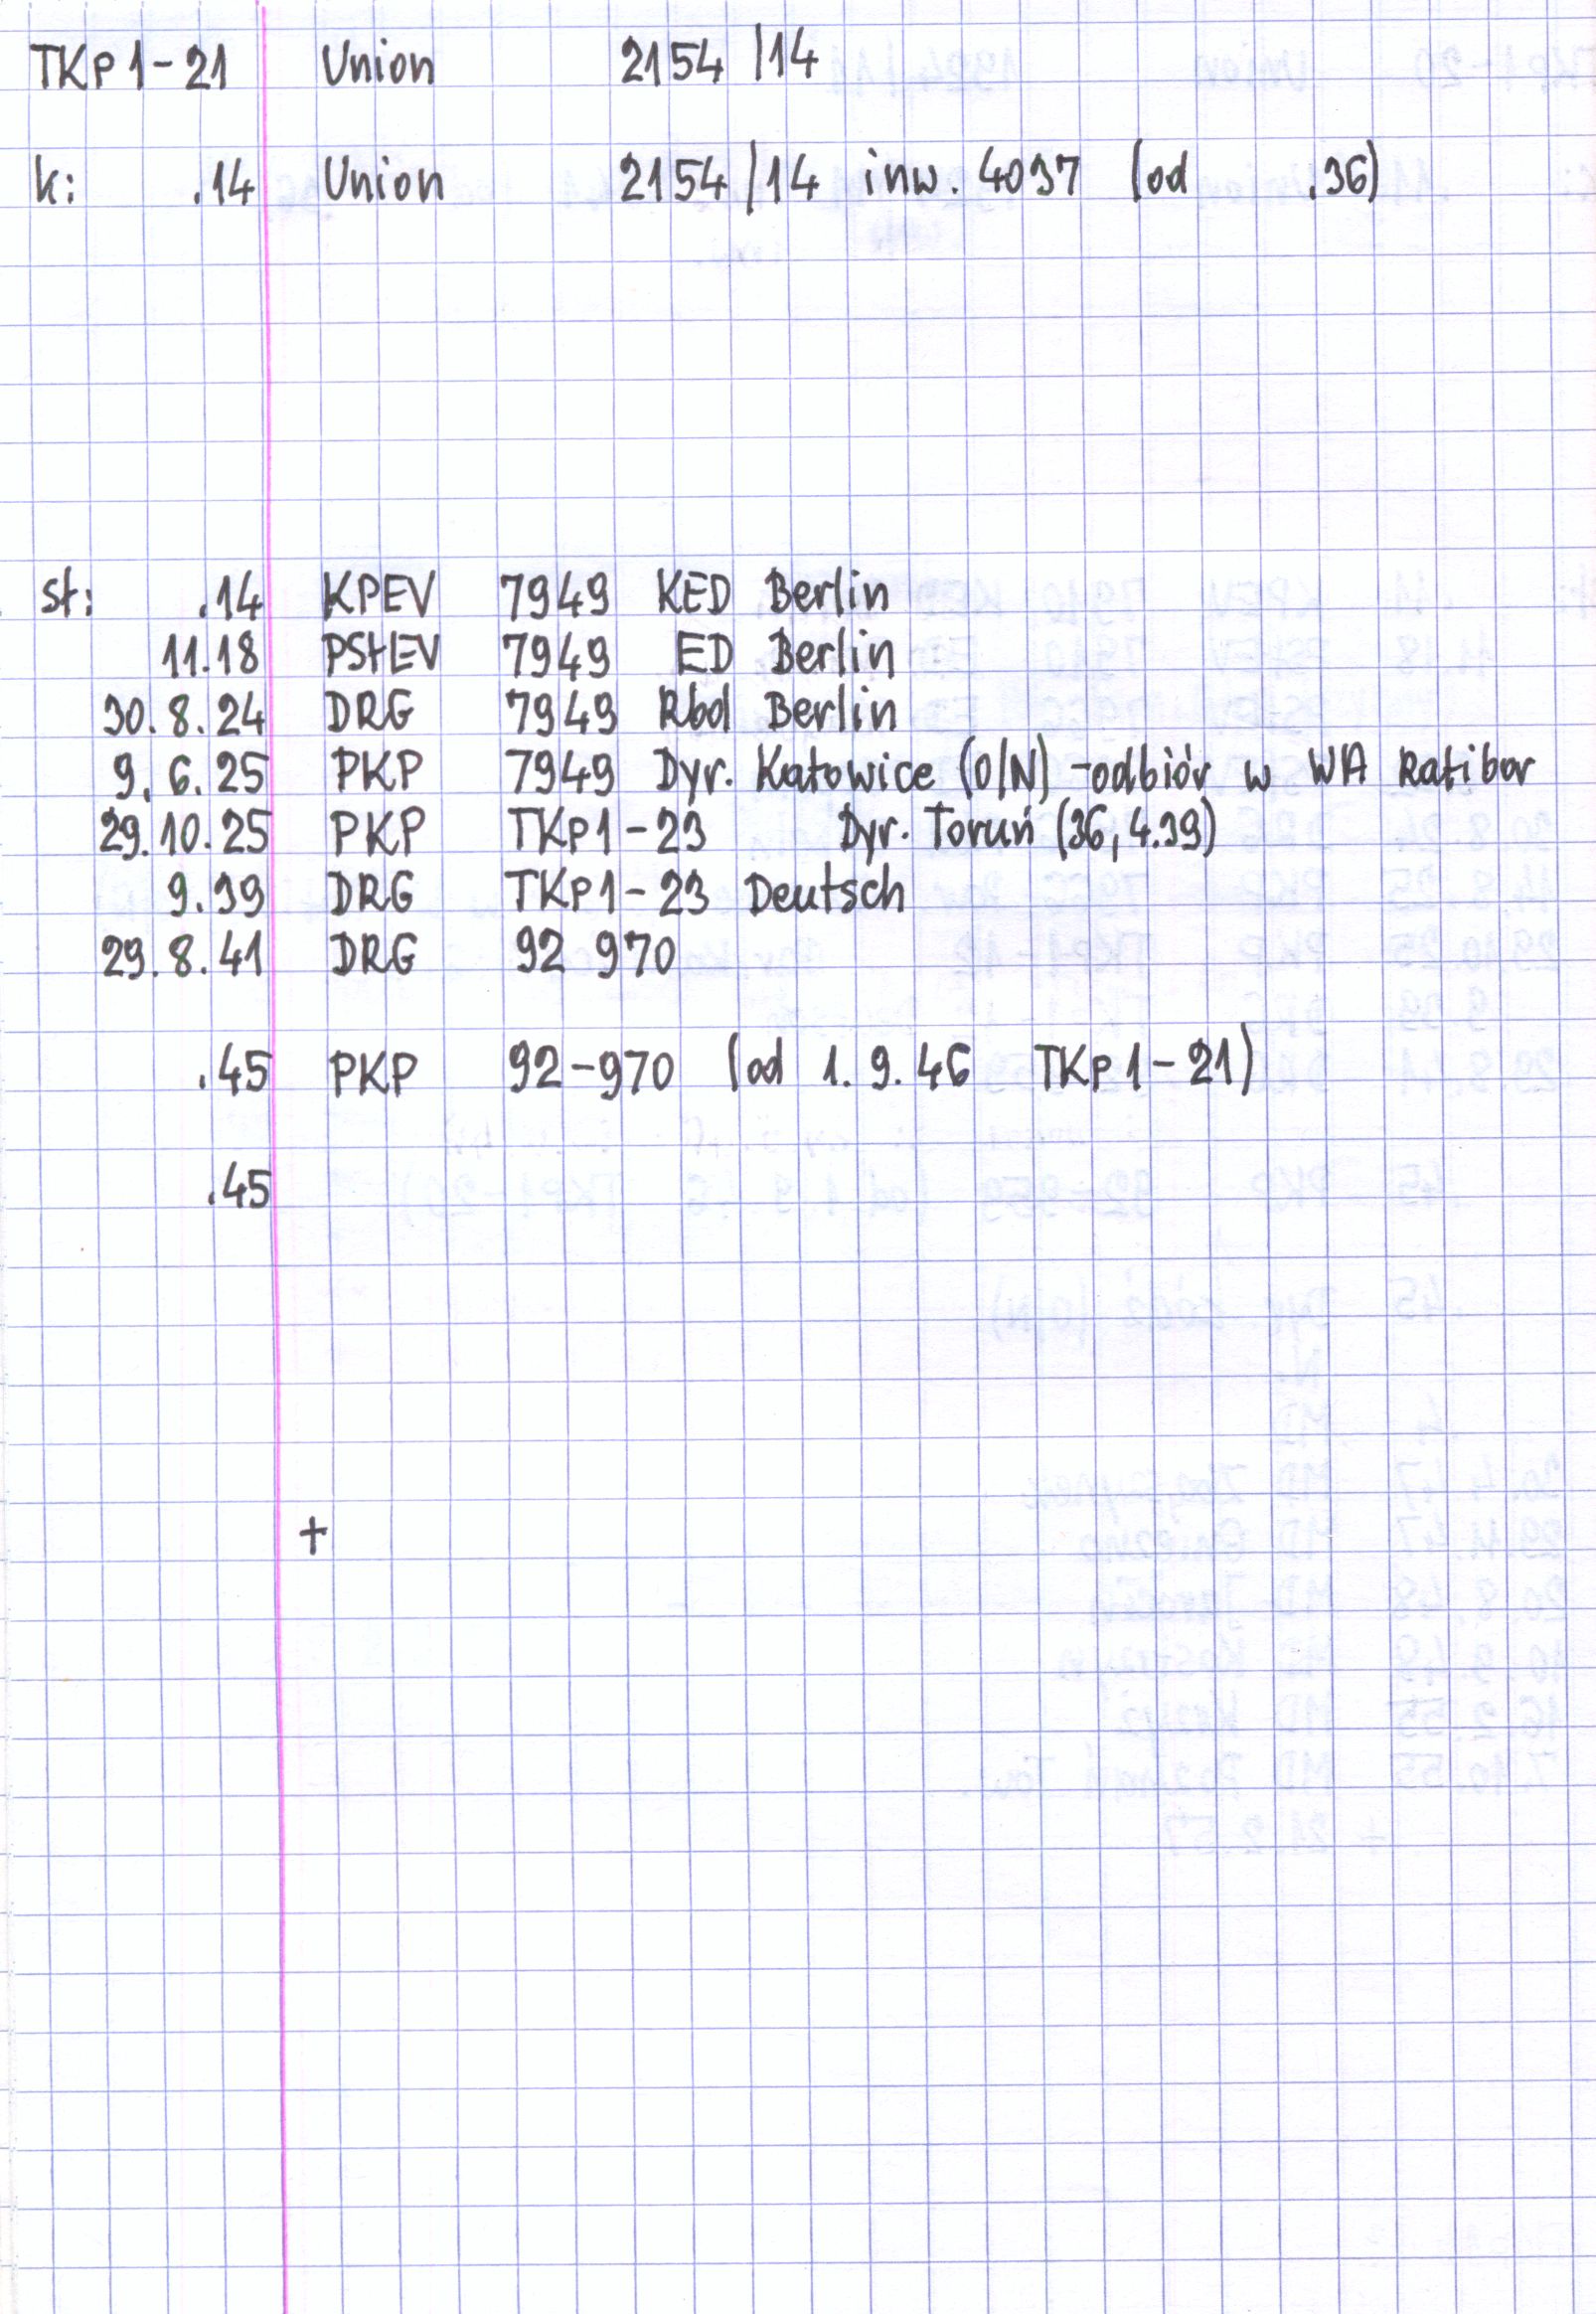 TKp1-21 Union 2154/14
k: .14 Union 2154/14 inw. 4037 (od .36)
st: .14 KPEV 7949 KED Berlin
11.18 PStEV 7949 ED Berlin
30.8.24 DRG 7949 Rbd Berlin
9.6.25 PKP 7949 Dyr. Katowice (O/N) -odbiór w WA Ratibor
29.10.25 PKP TKp1-23 Dyr. Toruń (36, 4.39)
9.39 DRG TKp1-23 Deutsch
29.8.41 DRG 92 970
.45 PKP 92-970 (od 1.9.46 TKp1-21)
.45
+